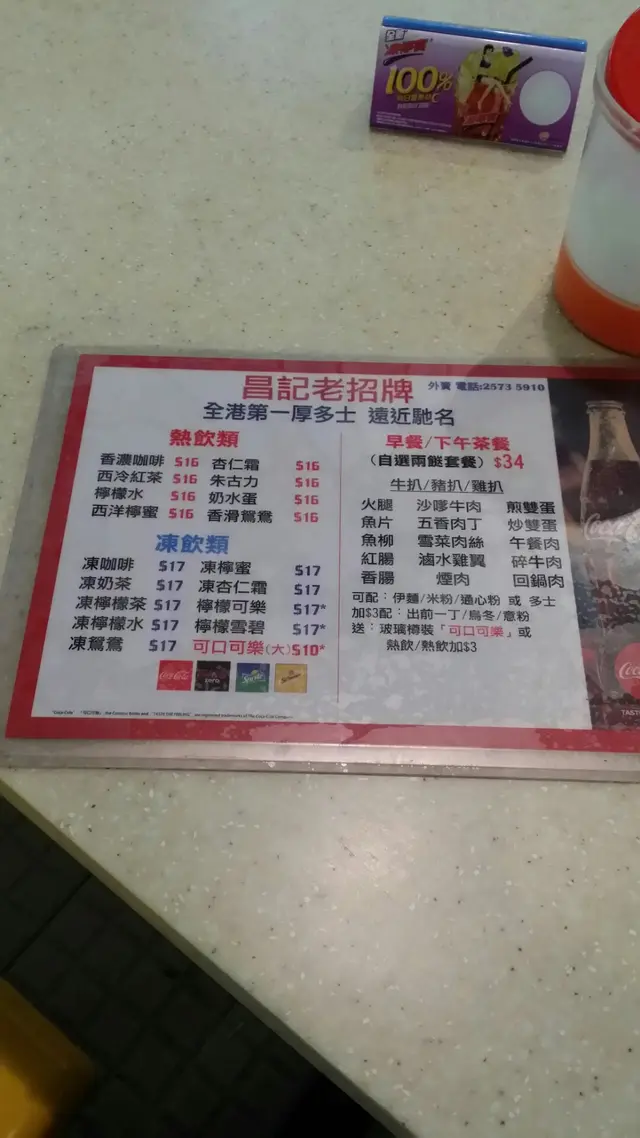 100%
昌記老招牌
外賣 電話:2573 5910
全港第一厚多士 遠近馳名
熱飲類
香濃咖啡 $16 杏仁霜 $16
西冷紅茶 $16 朱古力 $16
檸檬水 $16 奶水蛋 $16
西洋檸蜜 $16 香滑鴛鴦 $16
凍飲類
凍咖啡 $17 凍檸蜜 $17
凍奶茶 $17 凍杏仁霜 $17
凍檸檬茶 $17 檸檬可樂 $17*
凍檸檬水 $17 檸檬雪碧 $17*
凍鴛鴦 $17 可口可樂(大) $10*
Coca-Cola zero Sprite Schweppes
早餐/下午茶餐
(自選兩餸套餐) $34
牛扒/豬扒/雞扒
火腿 沙嗲牛肉 煎雙蛋
魚片 五香肉丁 炒雙蛋
魚柳 雪菜肉絲 午餐肉
紅腸 滷水雞翼 碎牛肉
香腸 煙肉 回鍋肉
可配：伊麵/米粉/通心粉 或 多士
加$3配：出前一丁/烏冬/意粉
送：玻璃樽裝「可口可樂」或
熱飲/熱飲加$3